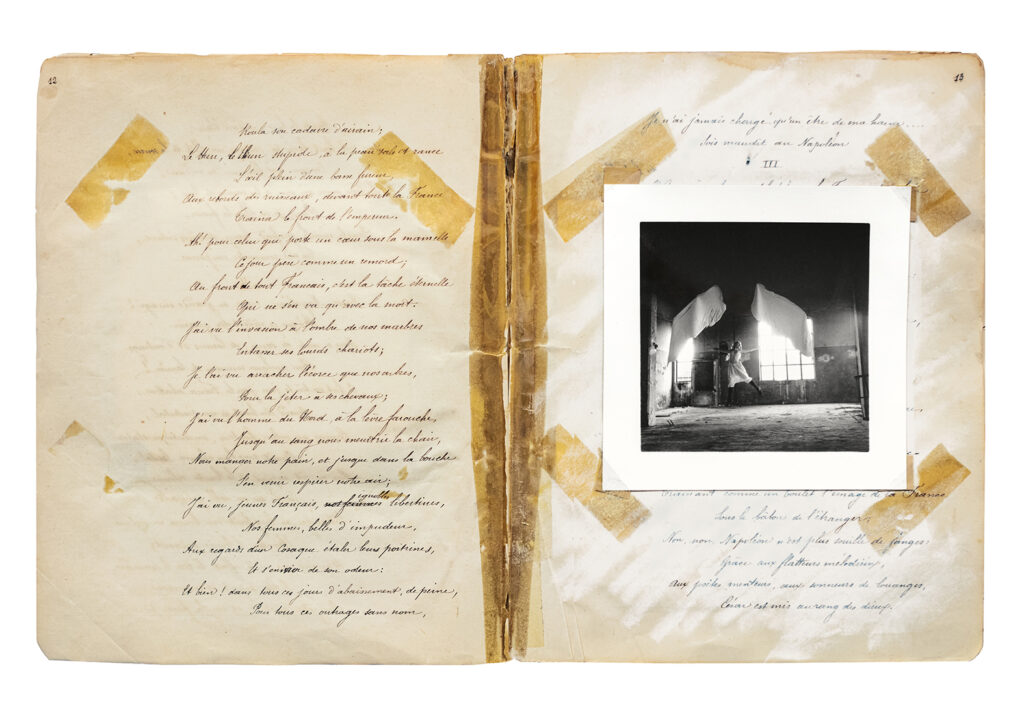 12
Roula son cadavre d'airain;
Le Hun, le Hun stupide, à la peau sale et rance
L'œil plein d'une basse fureur
Aux rebords des ruisseaux, devant toute la France
Traina le front de l'empereur.
Ah! pour celui qui porte un cœur sous la mamelle
Ce jour pèse comme un remord;
Au front de tout Francais, c'est la tâche éternelle
Qui ne s'en va qu'avec la mort.
J'ai vu l'invasion à l'ombre de nos marbres
Entasser ses lourds chariots;
Je l'ai vu arracher l'écorce que nos arbres,
Pour la jèter à ses chevaux;
J'ai vu l'homme du Nord, à la lèvre farouche,
Jusqu'au sang nous meurtrir la chair,
Nous manger notre pain, et jusque dans la bouche
S'en venir respirer notre air;
J'ai vu, jeunes Français, nos femmes ignobles libertines,
Nos femmes, belles d'impudeur,
Aux regards d'un Cosaque étaler leurs poitrines,
Et s'enivrer de son odeur:
Et bien! dans tous ces jours d'abaissement, de peine,
Pour tous ces outrages sans nom,
13
Je n'ai jamais chargé qu'un être de ma haine....
Sois maudit au Napoléon
III
Trainant comme un boulet l'image de la France
Sous le bâton de l'étranger,
Non, non, Napoléon n'est plus souillé de fanges:
Grâce aux flatteurs mélodieux,
Aux poètes menteurs, aux sonneurs de louanges,
César est mis au rang des dieux.